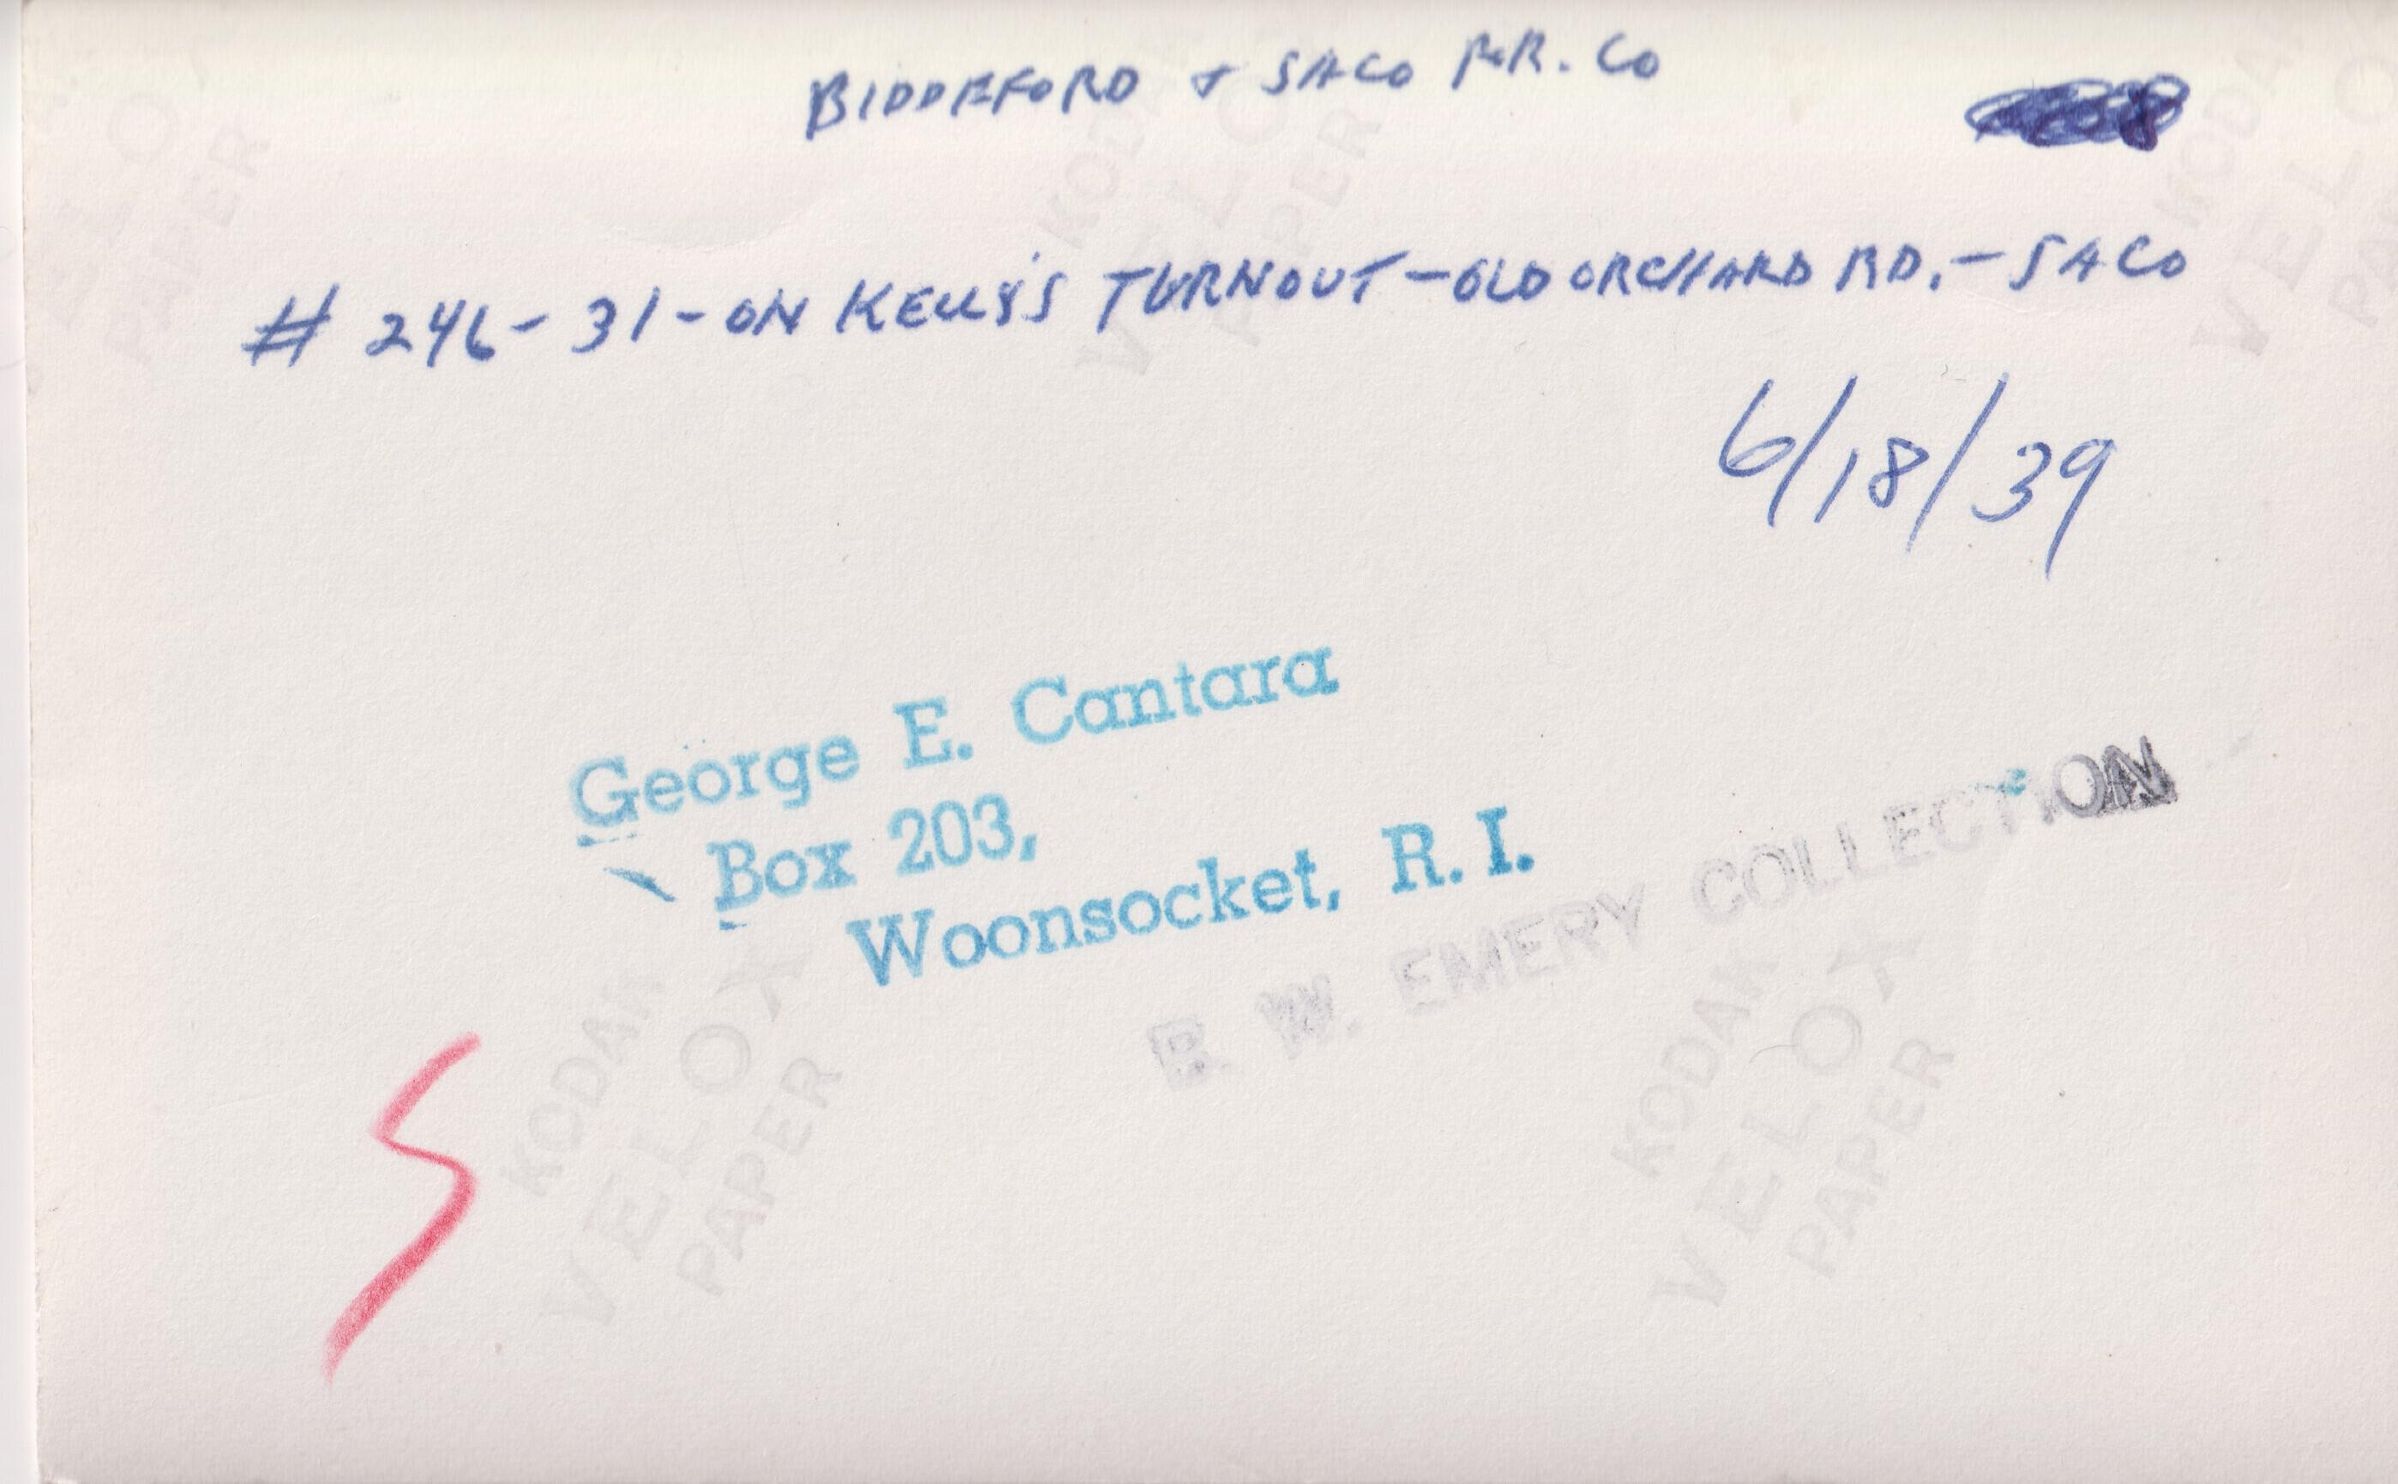 BIDDEFORD & SACO R.R. CO
# 246 - 31 - ON KELLY'S TURNOUT - OLD ORCHARD RD. - SACO
6/18/39
George E. Cantara
Box 203,
Woonsocket, R. I.
B. W. EMERY COLLECTION
S
KODAK
VELOX
PAPER
KODAK
VELOX
PAPER
KODAK
VELOX
PAPER